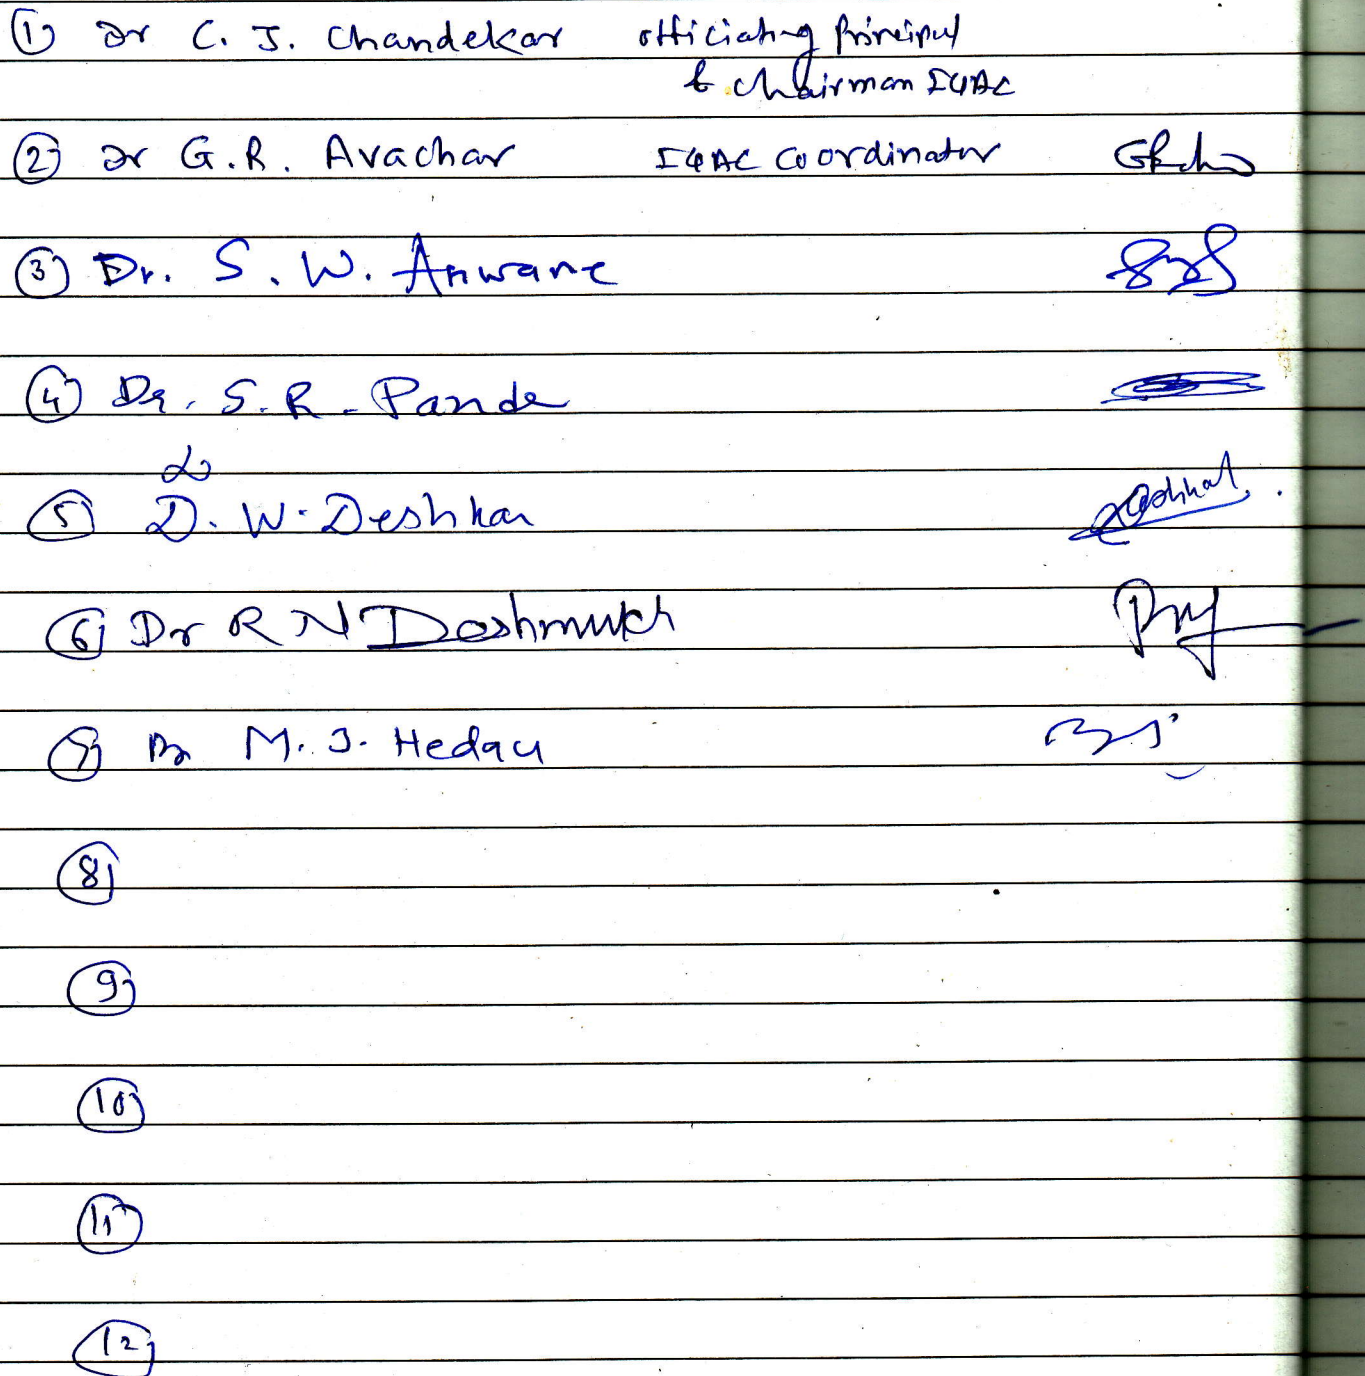 ① Dr C. J. Chandekar officiating Principal
& Chairman IQAC
② Dr G.R. Avachar IQAC Coordinator
③ Dr. S. W. Anwane
④ Dr. S. R. Pande
⑤ Dr D. W. Deshkar
⑥ Dr R N Deshmukh
⑦ Dr M. J. Hedau
⑧
⑨
⑩
⑪
⑫